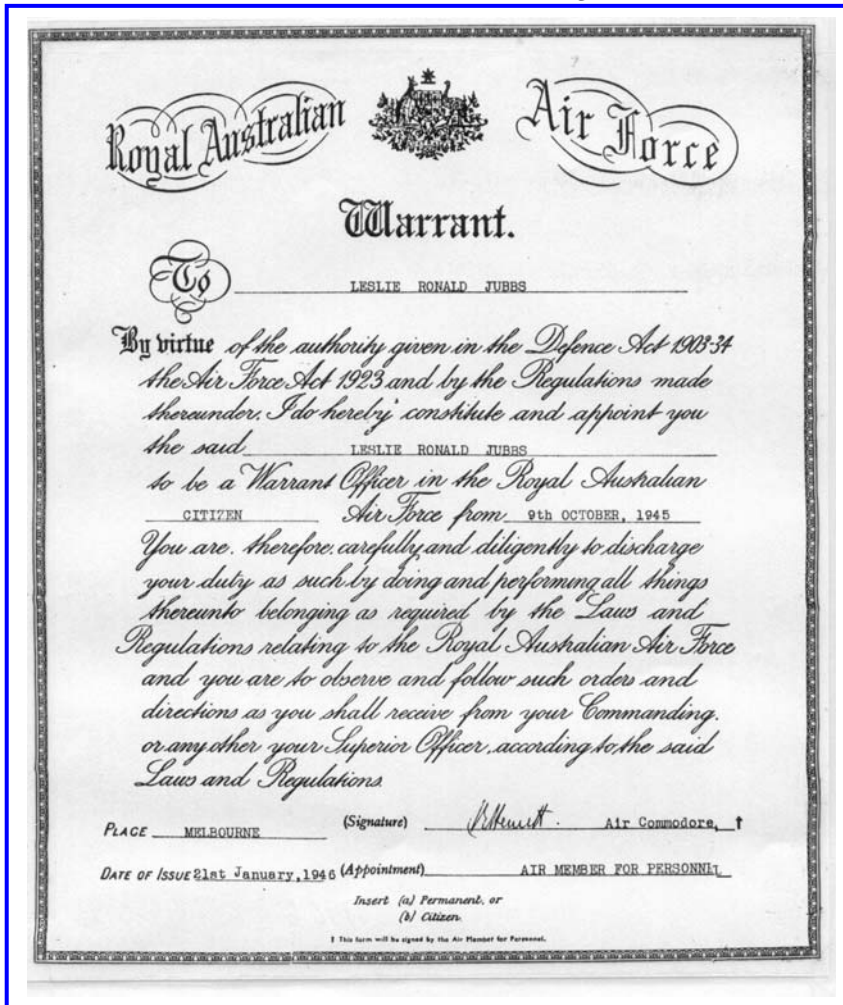 Royal Australian Air Force
Warrant.
To LESLIE RONALD JUBBS
By virtue of the authority given in the Defence Act 1903-34
the Air Force Act 1923 and by the Regulations made
thereunder. I do hereby constitute and appoint you
the said LESLIE RONALD JUBBS
to be a Warrant Officer in the Royal Australian
CITIZEN Air Force from 9th OCTOBER, 1945
You are, therefore, carefully and diligently to discharge
your duty as such by doing and performing all things
thereunto belonging as required by the Laws and
Regulations relating to the Royal Australian Air Force
and you are to observe and follow such orders and
directions as you shall receive from your Commanding,
or any other your Superior Officer, according to the said
Laws and Regulations.
PLACE MELBOURNE (Signature) Air Commodore, †
DATE OF ISSUE 21st January, 1946 (Appointment) AIR MEMBER FOR PERSONNEL
Insert (a) Permanent, or
(b) Citizen.
† This form will be signed by the Air Member for Personnel.